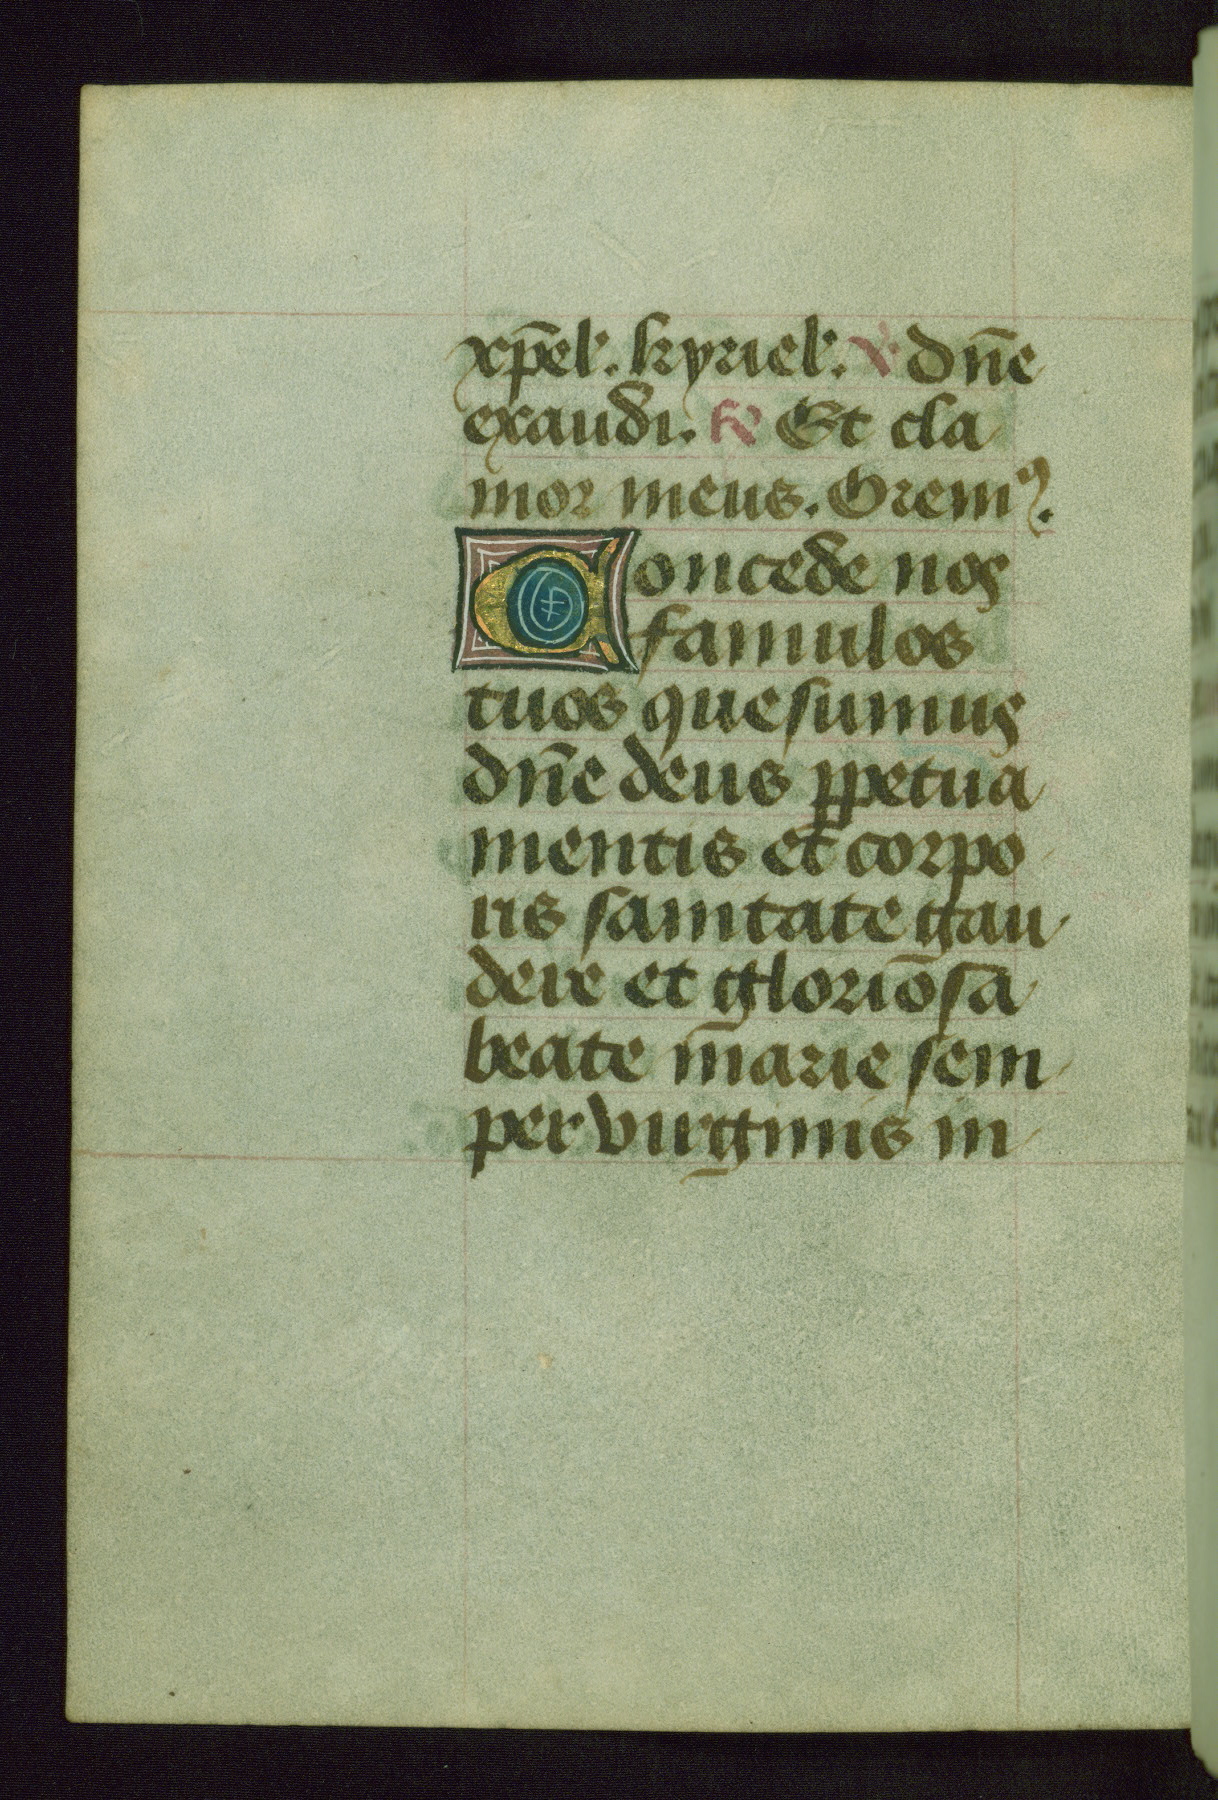 xp̄el'. kyriel'. ℣ dn̄e
exaudi. ℟ Et cla
mor meus. Oremꝰ.
Concede nos
famulos
tuos quesumus
dn̄e deus ꝑpetua
mentis et corpo
ris sanitate gau
dere et gloriosa
beate marie sem
per virginis in